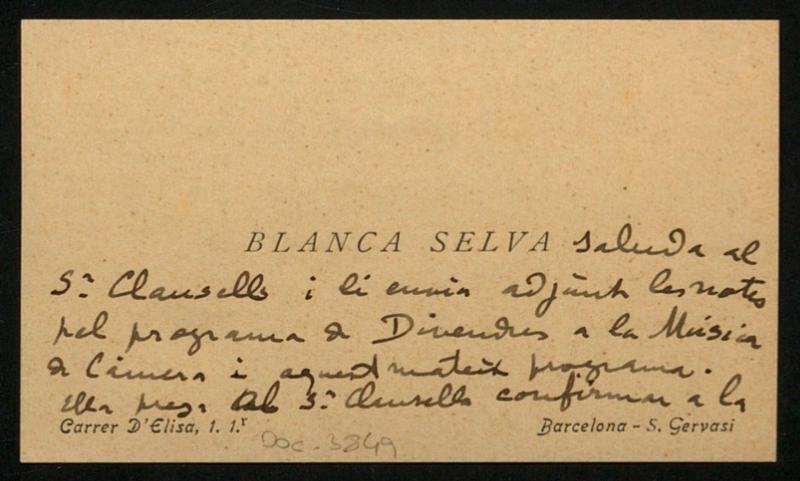 BLANCA SELVA saluda al
Sr Clausells i li envia adjunt les notes
pel programa de Divendres a la Música
de Càmera i aquest mateix programa.
Ella prega al Sr Clausells confirmar a la
Carrer D'Elisa, 1. 1.r Barcelona - S. Gervasi
Doc. 3849